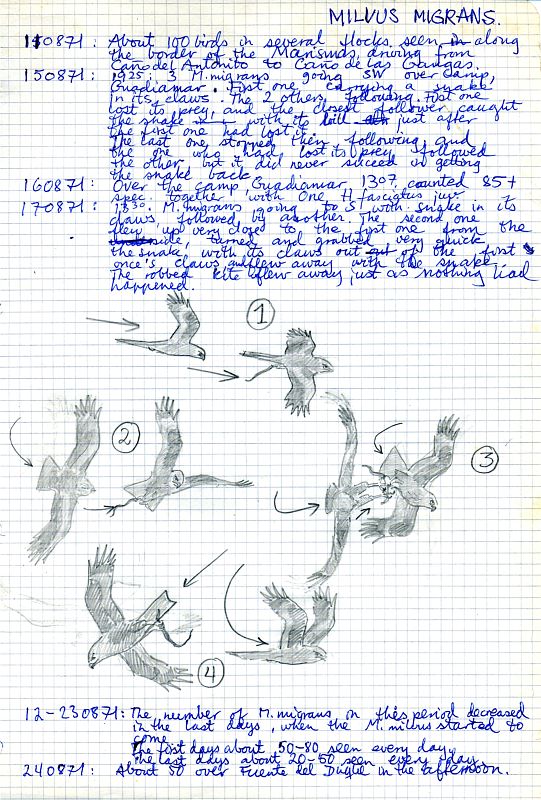 MILVUS MIGRANS.
110871: About 100 birds in several flocks seen along
the border of the Marismas, driving from
Caño del Antoñito to Caño de las Gangas.
150871: 0925: 3 M. migrans going SW over camp,
Guadiamar. First one carrying a snake
in its claws. The 2 others following. First one
lost its prey, and the closest follower caught
the snake with its bill just after
the first one had lost it.
The last one stopped then following, and
the one who had lost its prey followed
the other, but it did never succed in getting
the snake back.
160871: Over the camp, Guadiamar, 1307, counted 85+
spec. together with One H. fasciatus juv.
170871: 1830. M. migrans going to S with snake in its
claws followed by another. The second one
flew up very closed to the first one from the
side, turned and grabbed very quick
the snake with its claws out of the first
once's claws, & flew away with the snake.
The robbed kite flew away just as nothing had
happened.
1
2
3
4
12-230871: The number of M. migrans in this period decreased
in the last days, when the M. milvus started to
come.
The first days about 50-80 seen every day,
the last days about 20-50 seen every day.
240871: About 50 over Fuente del Duque in the afternoon.